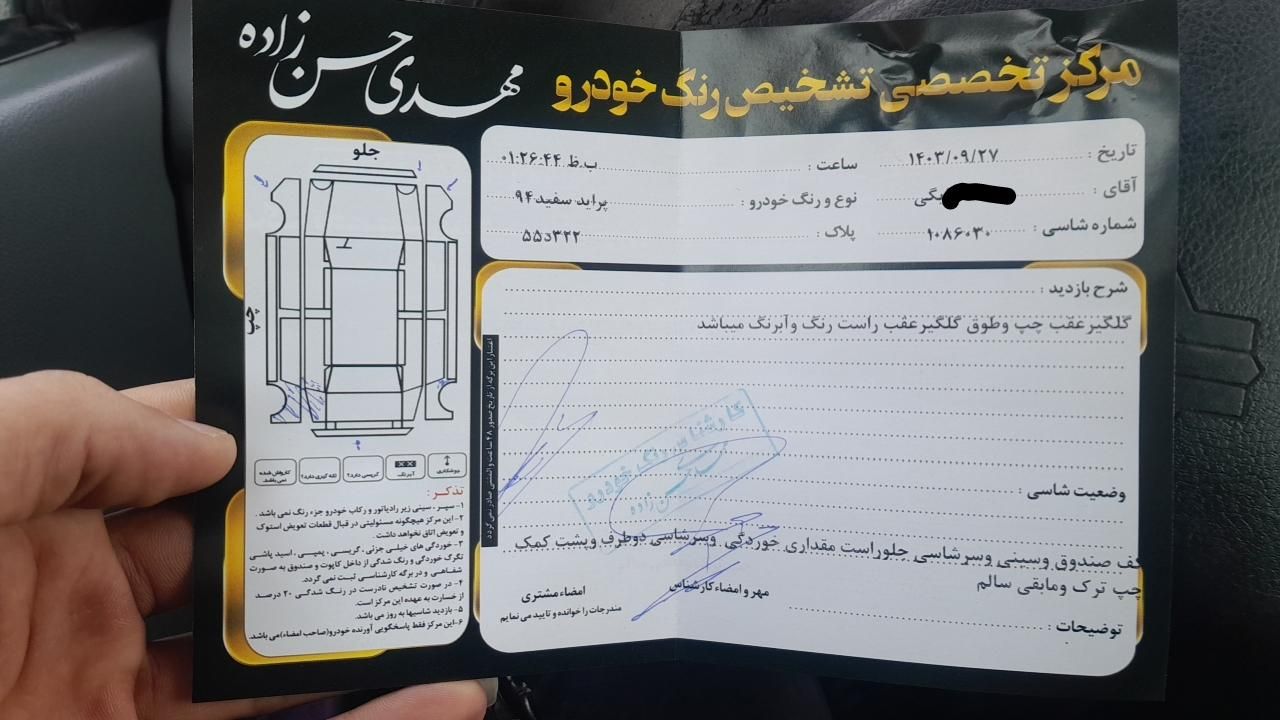 مرکز تخصصی تشخیص رنگ خودرو
مهدی حسن زاده
تاریخ : ۱۴۰۳/۰۹/۲۷
ساعت : ۰۱:۲۶:۴۴ ب.ظ
آقای : بیگی
نوع و رنگ خودرو : پراید سفید ۹۴
شماره شاسی : ۱۰۸۶۰۳۰
پلاک : ۵۵د۳۲۲
شرح بازدید :
گلگیر عقب چپ وطوق گلگیر عقب راست رنگ وآبرنگ میباشد
وضعیت شاسی :
کف صندوق وسینی وسرشاسی جلوراست مقداری خوردگی وسرشاسی دوطرف وپشت کمک
چپ ترک ومابقی سالم
توضیحات :
مهر و امضاء کارشناس
امضاء مشتری
مندرجات را خوانده و تایید می نمایم
کارشناس رنگ خودرو
حسن زاده
اعتبار این برگه از تاریخ صدور ۴۸ ساعت و المثنی صادر نمی گردد
جلو
چپ
جوشکاری
آبرنگ
گریسی دارد؟
لکه گیری دارد؟
کارواش شده نمی باشد.
تذکر :
۱- سپر ، سینی زیر رادیاتور و رکاب خودرو جزء رنگ نمی باشد .
۲- این مرکز هیچگونه مسئولیتی در قبال قطعات تعویض استوک
و تعویض اتاق نخواهد داشت .
۳- خوردگی های خیلی جزئی ، گریسی ، پمپسی ، اسید پاشی
تگرگ خوردگی و رنگ شدگی از داخل کاپوت و صندوق به صورت
شفاهی و در برگه کارشناسی ثبت نمی گردد.
۴- در صورت تشخیص نادرست در رنگ شدگی ۲۰ درصد
از خسارت به عهده این مرکز است.
۵- بازدید شاسیها به روز می باشد.
۶- این مرکز فقط پاسخگویی آورنده خودرو(صاحب امضاء)می باشد.